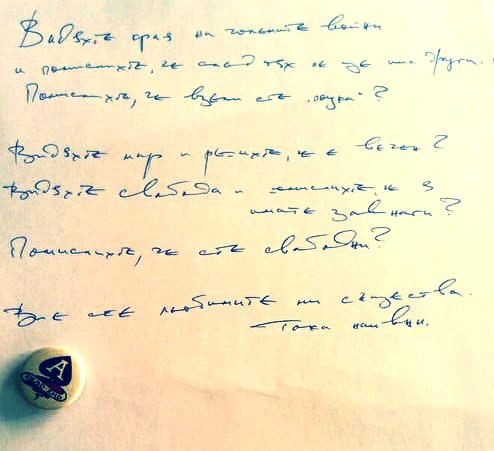 Видяхте края на големите войни
и помислихте, че след тях не ще има други.
Помислихте, че взели сте "поука"?
Видяхте мир и решихте, че е вечен?
Видяхте свобода и помислихте, че я
имате завинаги?
Помислихте, че сте свободни?
Вие сте любимите ни същества.
Тока наивни.
A